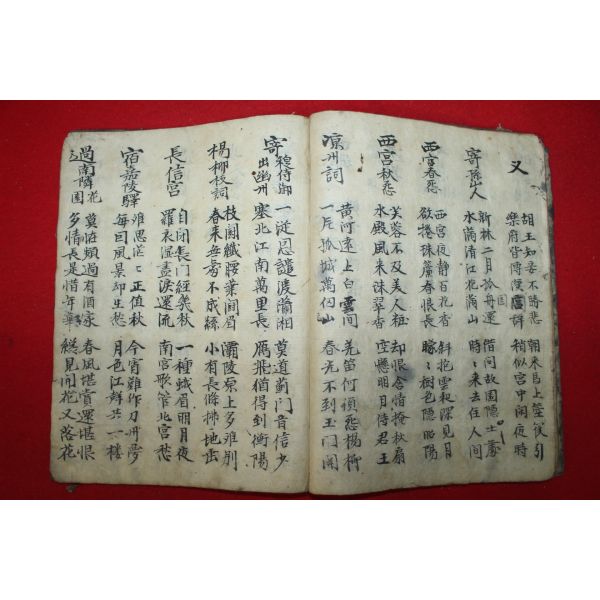 又
胡王知妾不勝悲
樂府皆傳漢國辞
朝來馬上箜篌引
稍似宮中閑夜時
寄孫山人
新林二月孤舟還
水滿清江花滿山
借問故園隱士處
時〻來去住人間
西宮春怨
西宮夜靜百花香
欲捲珠簾春恨長
斜抱雲和深見月
朦〻樹色隱昭陽
西宮秋怨
芙蓉不及美人粧
水殿風來珠翠香
却恨含情掩秋扇
空懸明月侍君王
涼州詞
黃河遠上白雲間
一片孤城萬仞山
羌笛何須怨楊柳
春光不到玉門關
寄穆侍御出幽州
一從恩譴渡瀟湘
塞北江南萬里長
莫道薊門音信少
鴈飛猶得到衡陽
楊柳枝詞
枝鬪纖腰葉鬪眉
春來無處不成絲
灞陵原上多離別
小有長條拂地垂
長信宮
自閉長門經幾秋
羅衣濕盡淚還流
一種蛾眉明月夜
南宮歌管北宮愁
宿嘉陵驛
離思茫〻正值秋
每因風景却生愁
今宵難作刀州夢
月色江聲共一樓
過南隣花園
莫怪頻過有酒家
多情長是惜年華
春風堪賞還堪恨
纔見開花又落花